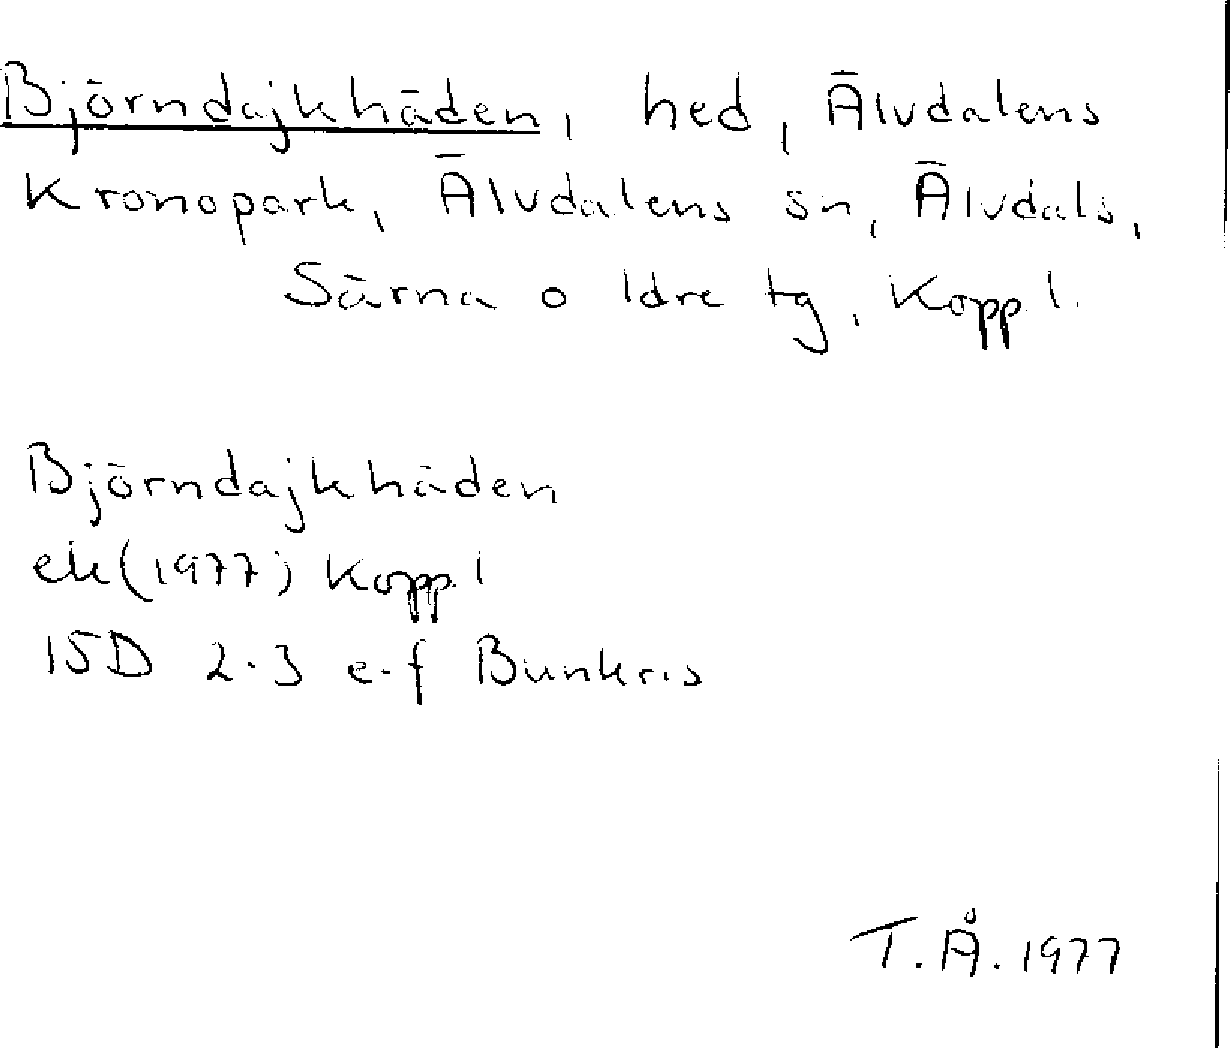 Björndajkhäden, hed, Älvdalens
Kronopark, Älvdalens sn, Älvdals,
Särna o Idre tg, Kopp l.
Björndajkhäden
ek (1977) Kopp. l
15D 2-3 e-f Bunkris
T.Å. 1977